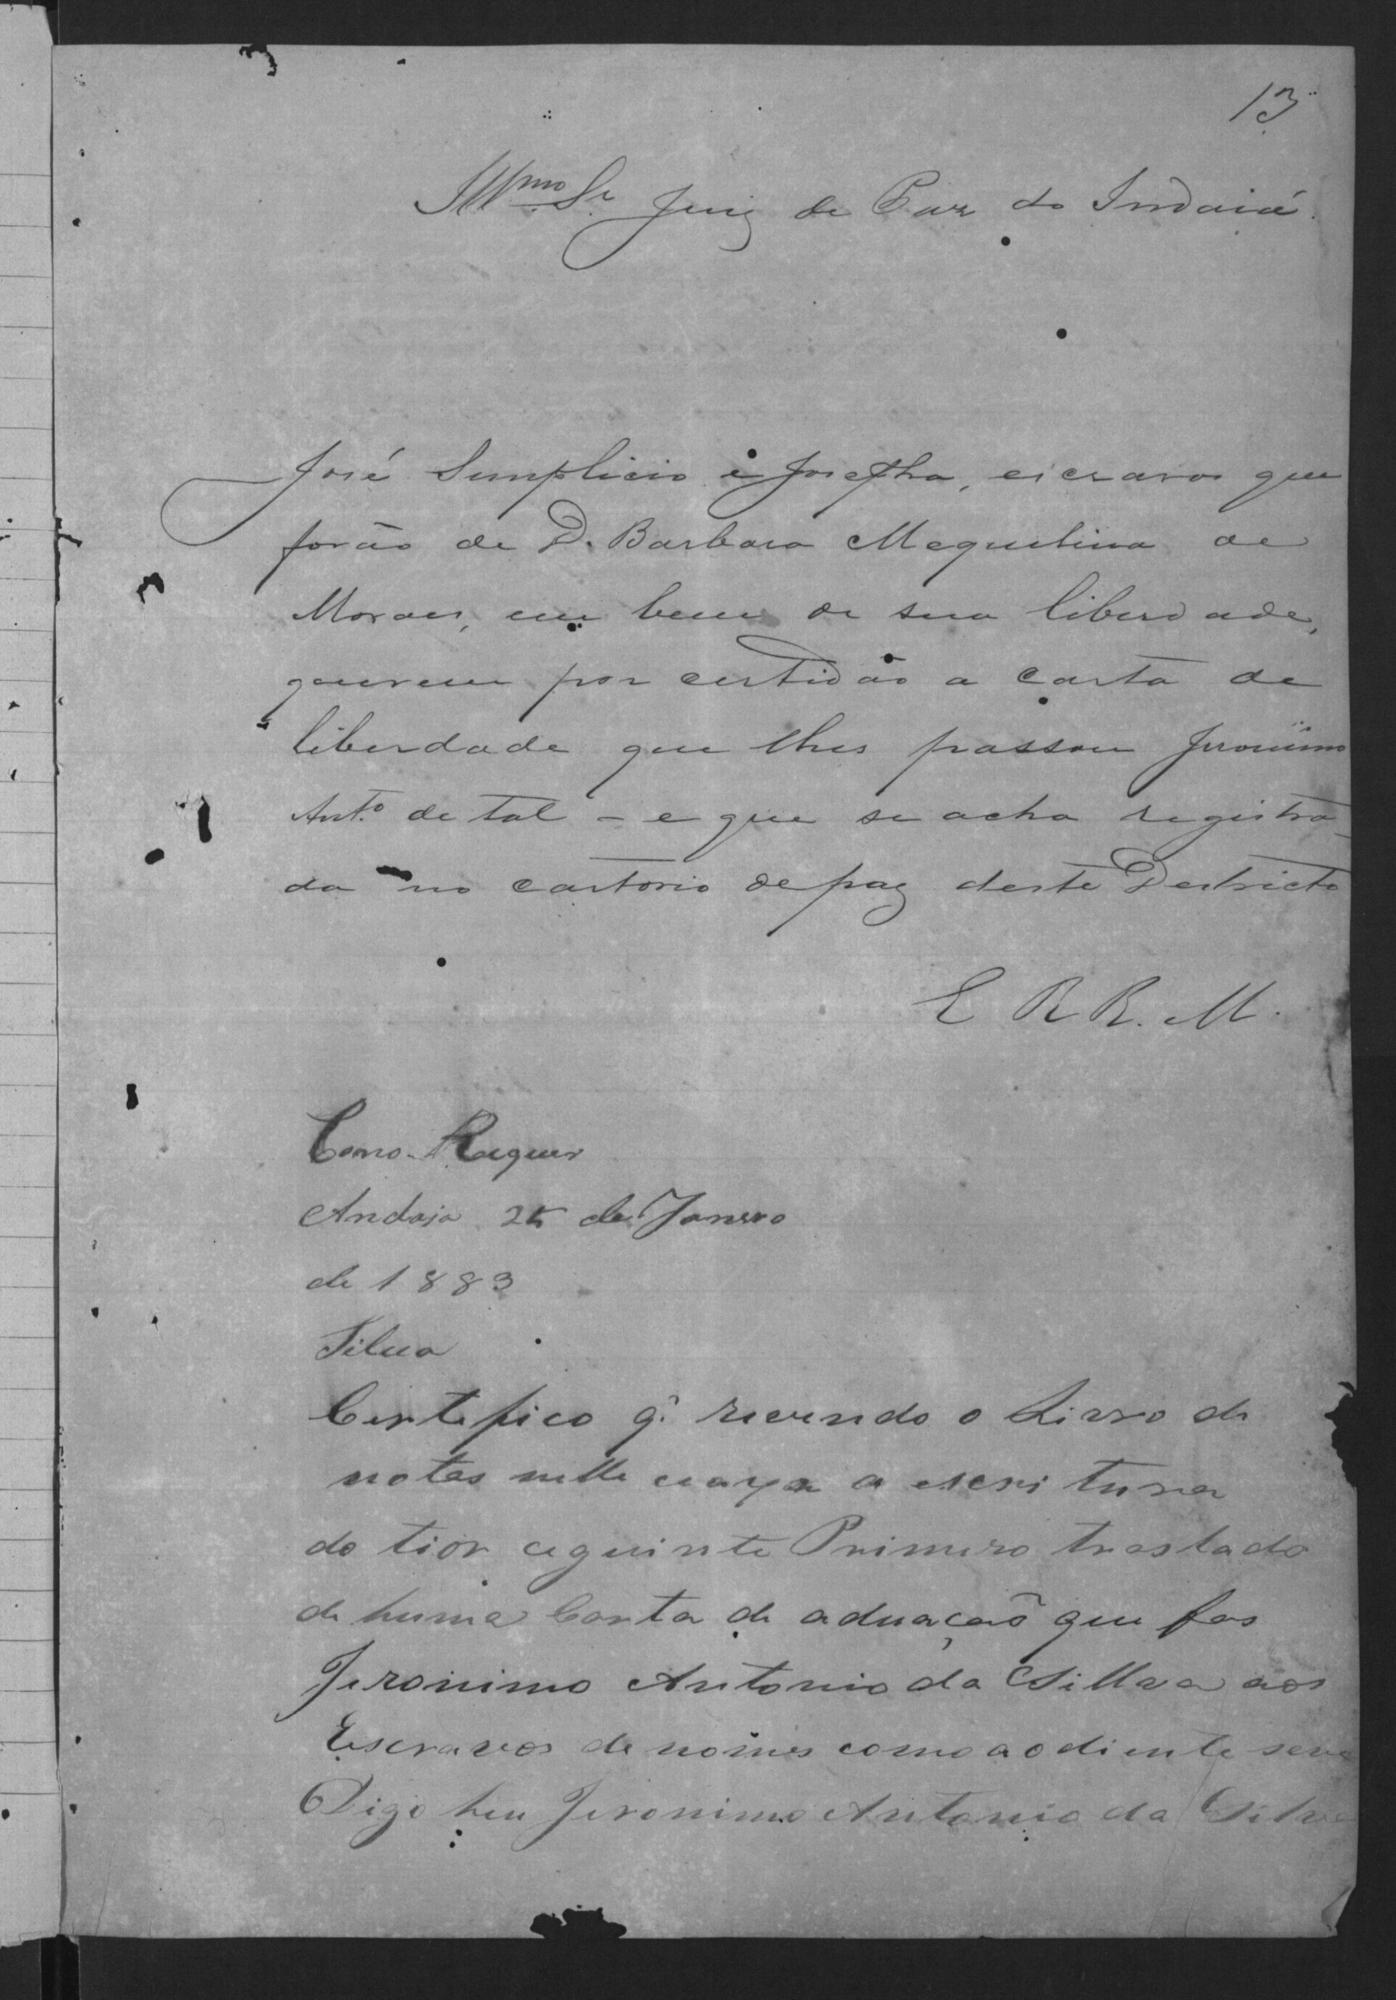 13
Illmo. Sr. Juiz de Paz do Indaiá.
José Simplicio e Josepha, escravos que
forão de D. Barbara Mequelina de
Moraes, em bem de sua liberdade,
querem por certidão a carta de
liberdade que lhes passou Jeronimo
Anto. de tal - e que se acha registra-
da no cartorio de paz deste Destricto
E R R. M.
Como Requer
Andaia 25 de Janero
de 1883
Silva
Certefico q. revendo o Livro de
notas nelle a escritura
do tior ceguinte Primero traslado
de huma Carta de aduação que fas
Jeronimo Antonio da Sillva aos
Escravos de nomes como ao diente seve
Digo heu Jeronimo Antonio da Silva